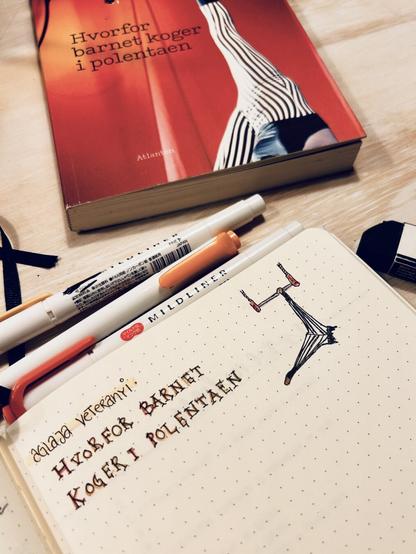 Hvorfor
barnet koger
i polentaen
Atlanten
MILDLINER
aglaja veteranyi
HVORFOR BARNET
KOGER I POLENTAEN